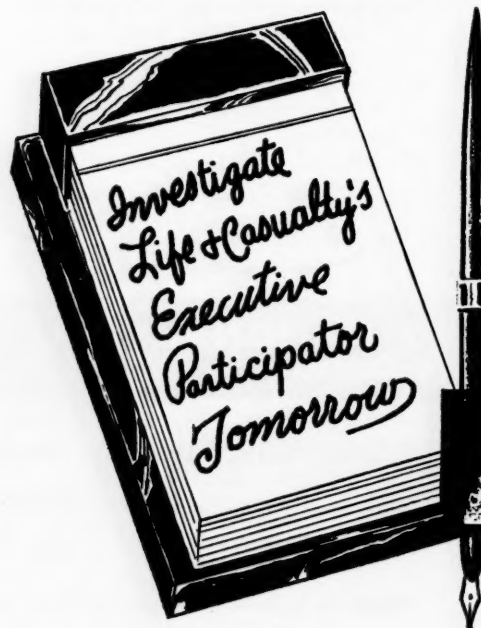 Investigate
Life & Casualty's
Executive
Participator
Tomorrow